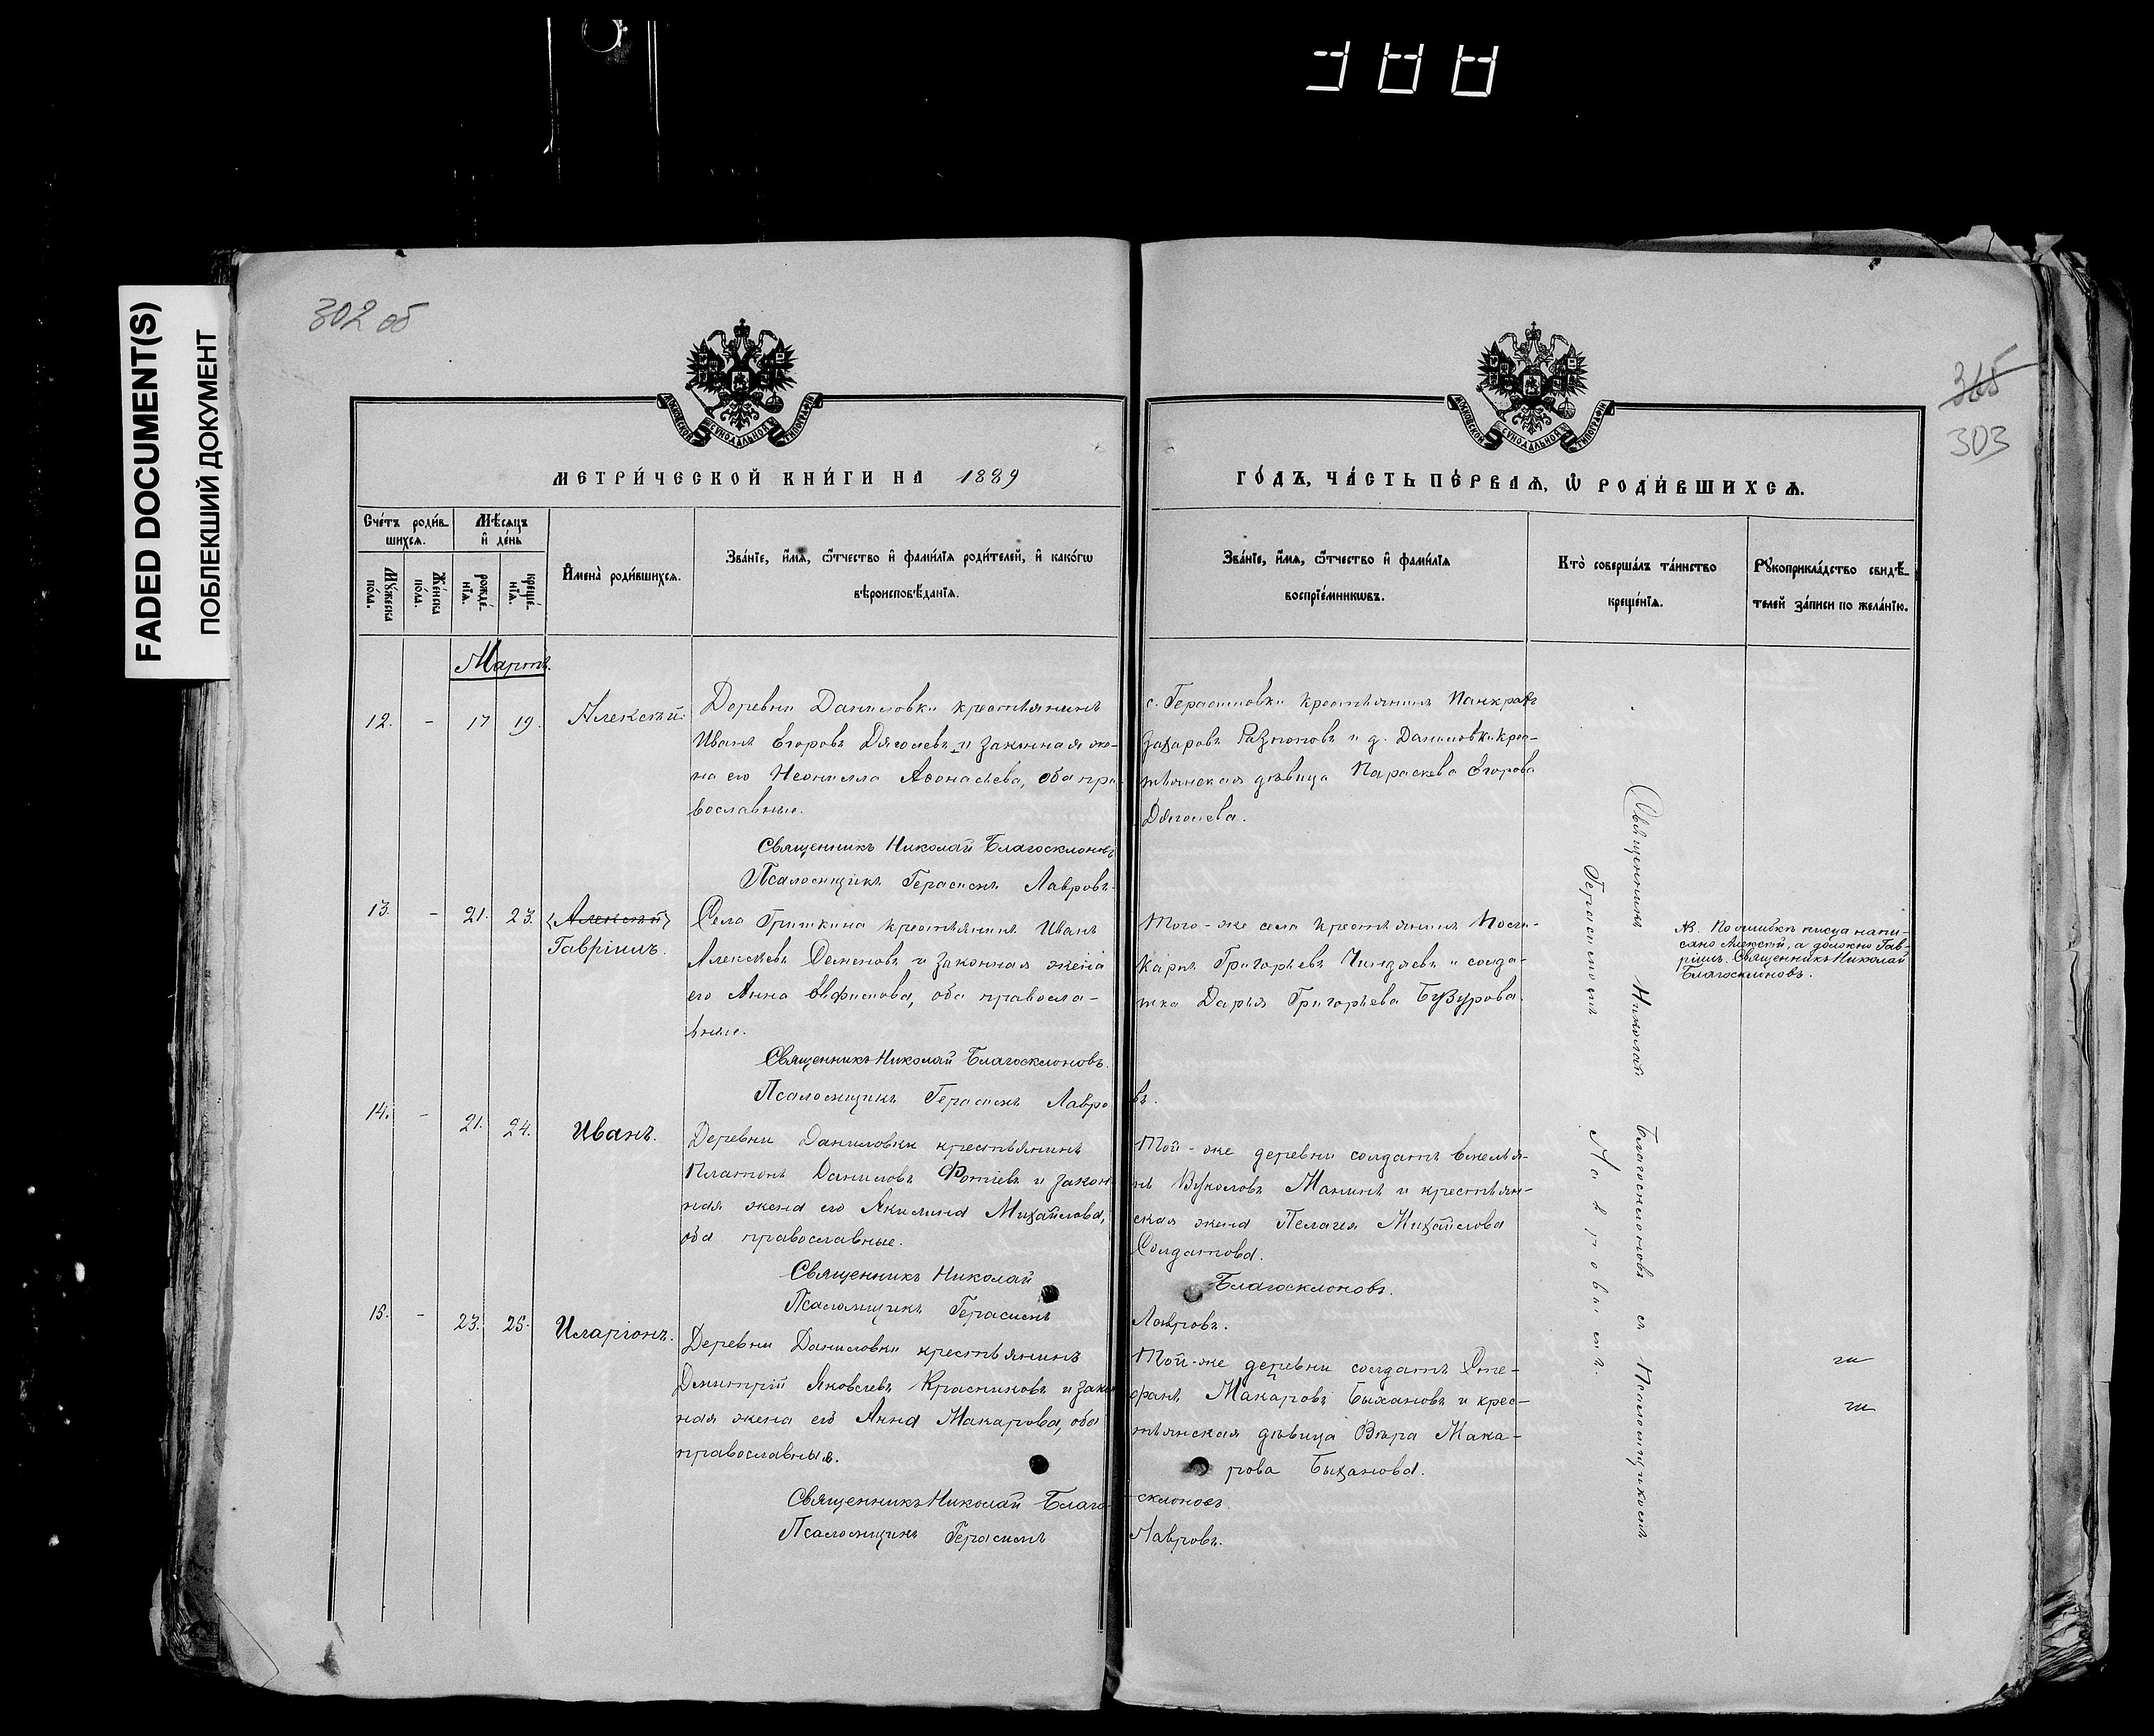 FADED DOCUMENT(S)
ПОБЛЕКШИЙ ДОКУМЕНТ
302 об
365
303
МОСКОВСКОЙ СУНОДАЛЬНОЙ ТИПОГРАФІИ
МОСКОВСКОЙ СУНОДАЛЬНОЙ ТИПОГРАФІИ
МЕТРИ́ЧЕСКОЙ КНИ́ГИ НА 1889
ГО́ДЪ, ЧА́СТЬ ПЕ́РВАѦ, Ѡ҆ РОДИ́ВШИХСѦ.
Сче́тъ роди́в-
шихсѧ.
Мꙋ́жеска пола.
Же́нска пола.
Мѣ́сѧцъ
и҆ де́нь
рожде́-
нїѧ.
креще́-
нїѧ.
И҆мена̀ роди́вшихсѧ.
Зва́нїе, и҆́мѧ, ѻ҆́тчество и҆ фами́лїѧ роди́телей, и҆ како́гѡ
вѣроисповѣ́данїѧ.
Зва́нїе, и҆́мѧ, ѻ҆́тчество и҆ фами́лїѧ
воспрїе́мникѡвъ.
Кто̀ соверша́лъ та́инство
креще́нїѧ.
Рꙋкоприкла́дство свидѣ́-
телей за́писи по жела́нїю.
Мартъ.
12. - 17 19. Алексѣй.
Деревни Даниловки крестьянинъ
Иванъ Егоровъ Дяголевъ и законная же-
на его Неонилла Аѳонасьева, оба пра-
вославные.
Священникъ Николай Благосклоновъ
Псаломщикъ Герасимъ Лавровъ.
с. Герасимовки крестьянинъ Панкратъ
Захаровъ и д. Даниловки крес-
тьянская дѣвица Параскева Егорова
Дяголева.
13. - 21. 23. Алексѣй
Гавріилъ.
Села Гришкина крестьянинъ Иванъ
Алексѣевъ Деменовъ и законная жена
его Анна Евфимова, оба правосла-
вные.
Священникъ Николай Благосклоновъ.
Псаломщикъ Герасимъ Лавровъ.
Того-же села крестьянинъ
Григорьевъ и солда-
тка Дарья Григорьева Бузурова.
№. По ошибкѣ писца напи-
сано Алексѣй, а должно Гав-
ріилъ. Священникъ Николай
Благосклоновъ.
14. - 21. 24. Иванъ.
Деревни Даниловки крестьянинъ
Платонъ Даниловъ Фотіевъ и закон-
ная жена его Акилина Михайлова,
оба православные.
Священникъ Николай Благосклоновъ.
Псаломщикъ Герасимъ Лавровъ.
Той-же деревни солдатъ Емелья-
нъ Вуколовъ Манинъ и крестьян-
ская жена Пелагея Михайлова
Солдатова.
15. - 23. 25. Иларіонъ.
Деревни Даниловки крестьянинъ
Димитрій Яковлевъ Красниковъ и закон
ная жена его Анна Макарова, оба
православныя.
Священникъ Николай Благосклоновъ.
Псаломщикъ Герасимъ Лавровъ.
Той-же деревни солдатъ Сте-
фанъ Макаровъ Быхановъ и крес-
тьянская дѣвица Вѣра Мака-
рова Быханова.
Священникъ Николай Благосклоновъ съ Псаломщикомъ
Герасимомъ Лавровымъ.